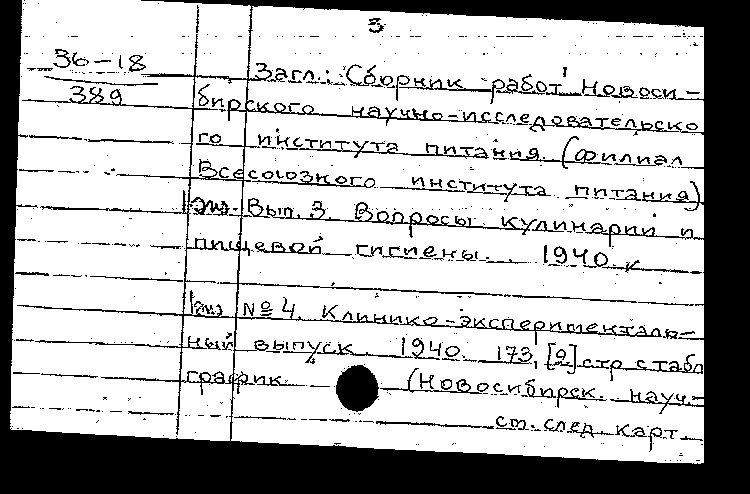 3
36-18
389
Загл.: Сборник работ Новоси-
бирского научно-исследовательско
го института питания (филиал
Всесоюзного института питания)
Вып. 3. Вопросы кулинарии и
пищевой гигиены. 1940.
№ 4. Клинико-эксперименталь-
ный выпуск. 1940. 173, [2] стр с табл
график. (Новосибирск. науч.-
см. след. карт.